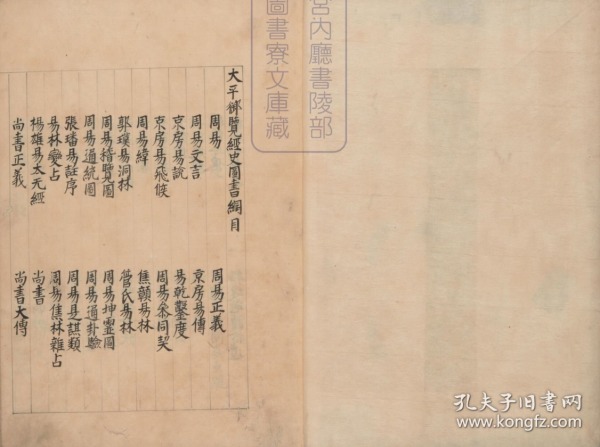 宮內廳書陵部
圖書寮文庫藏
大平御覽經史圖書綱目
周易
周易正義
周易文言
京房易傳
京房易說
易乾鑿度
京房易飛候
周易參同契
周易緯
焦贛易林
郭璞易洞林
管氏易林
周易稽覽圖
周易坤靈圖
周易通統圖
周易通卦驗
張璠易註序
周易是謀類
易林變占
周易焦林雜占
楊雄易太元經
尚書
尚書正義
尚書大傳
孔夫子旧书网
www.kongfz.com